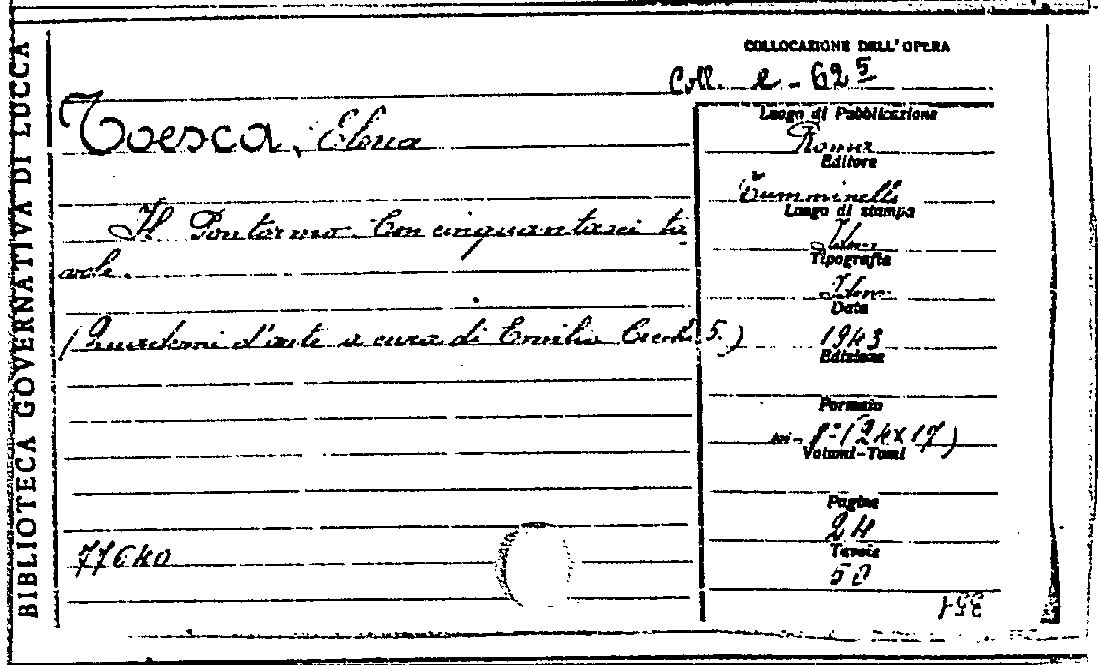 BIBLIOTECA GOVERNATIVA DI LUCCA
COLLOCAZIONE DELL'OPERA
Coll. e - 62 5
Toesca, Elena
Il Pontormo. Con cinquantasei ta-
vole.
(Quaderni d'arte a cura di Emilio Cecchi 5.)
77640
Luogo di Pubblicazione
Roma
Editore
Tumminelli
Luogo di stampa
Tipografia
Data
1943
Edizione
Formato
in-8° (24x17)
Volumi-Tomi
Pagine
24
Tavole
50
351